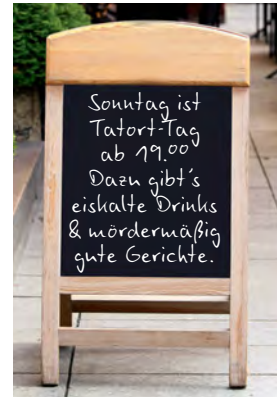 Sonntag ist
Tatort-Tag
ab 19.00
Dazu gibt's
eiskalte Drinks
& mördermäßig
gute Gerichte.